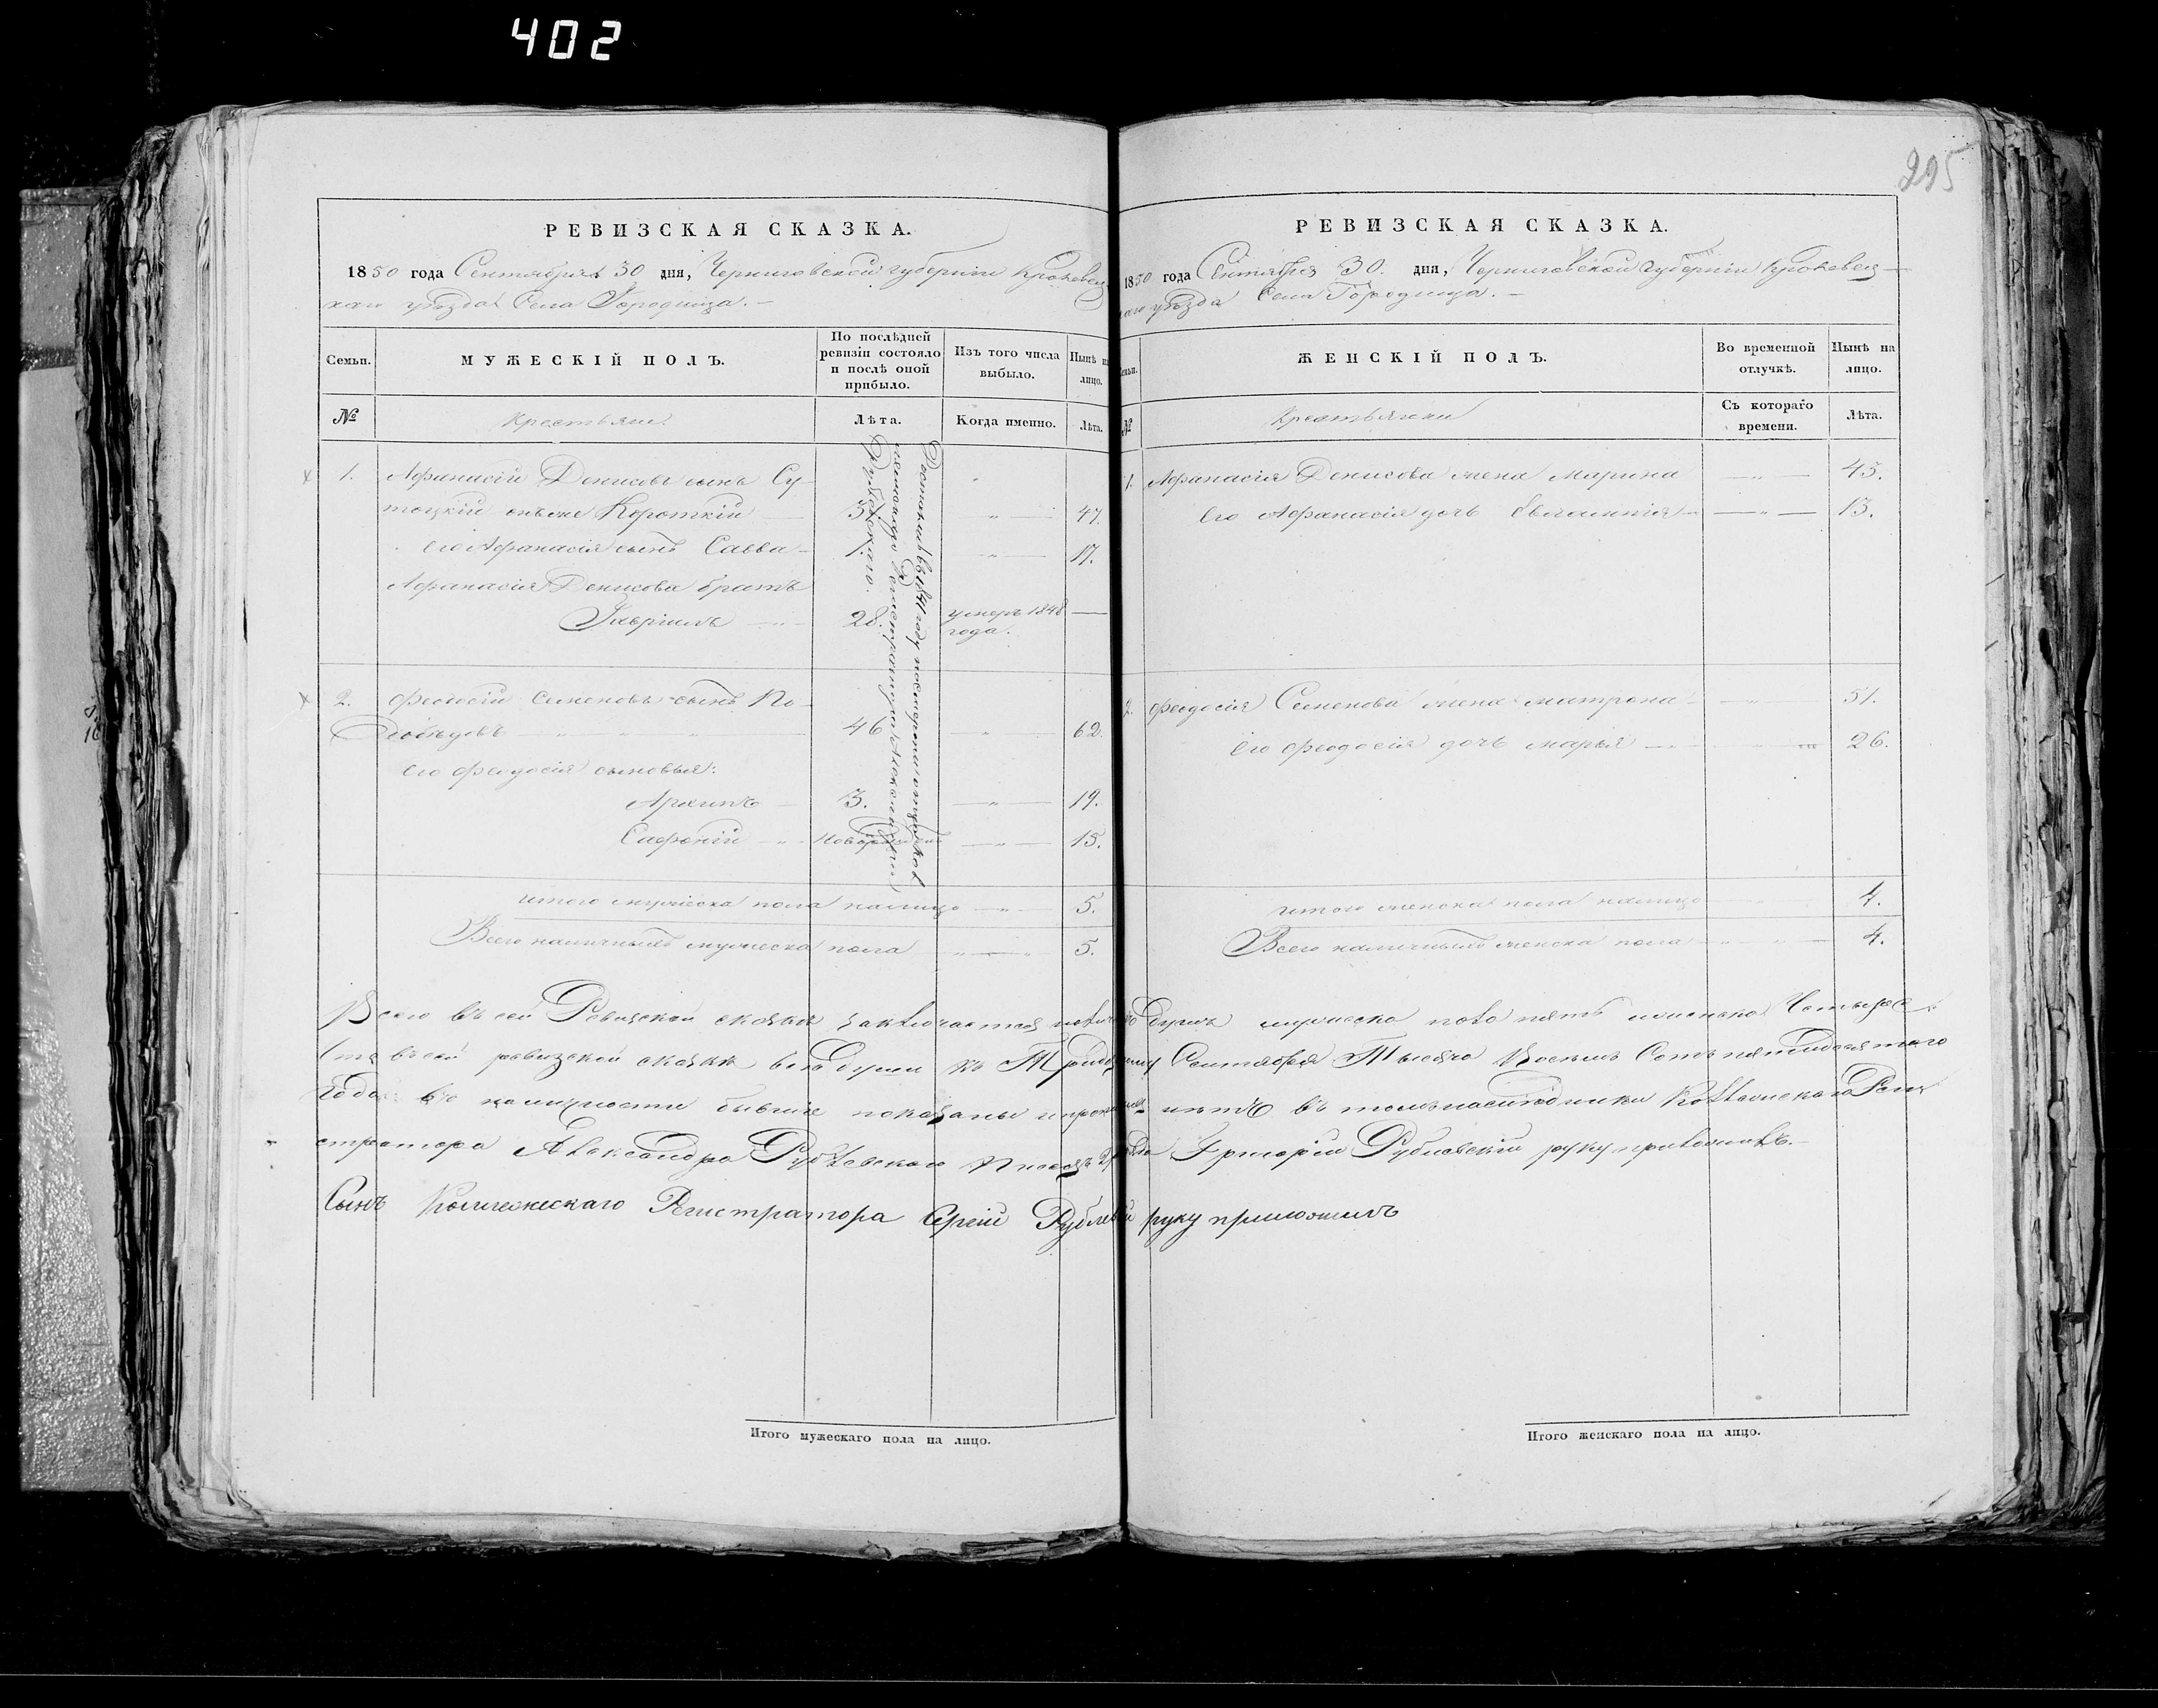 402
295
РЕВИЗСКАЯ СКАЗКА.
1850 года Сентября 30 дня, Черниговской губернии Кролевец
каго уѣзда Села Городища.
Семьи.
МУЖЕСКІЙ ПОЛЪ.
По послѣдней ревизіи состояло и послѣ оной прибыло.
Изъ того числа выбыло.
Нынѣ на лицо.
№
Крестьяне
Лѣта.
Когда именно.
Лѣта.
1. Афанасій Денисовъ сынъ Су
тоцкій онъже Короткій 47.
его Афанасія сынъ Савва 1. 17.
Афанасія Денисова братъ
Гавріилъ 28. умеръ 1848 года.
Достались въ 1841 году
Регистратора Александра
Рублевскаго.
2. Феодосій Семеновъ сынъ По
46 62.
его Феодосія сыновья:
Архипъ 3. 19.
Сафоній новорожденъ 15.
итого мужеска пола налицо 5.
Всего наличныхъ мужеска пола 5.
РЕВИЗСКАЯ СКАЗКА.
1850 года Сентября 30. дня, Черниговской губерніи Кролевец
каго уѣзда Села Городища.
Семьи.
ЖЕНСКІЙ ПОЛЪ.
Во временной отлучкѣ.
Нынѣ на лицо.
№
Крестьянки
Съ котораго времени.
Лѣта.
1. Афанасія Денисова жена Марина 43.
Его Афанасія дочь Евгенія 13.
2. Феодосія Семенова жена Матрона 51.
Его Феодосія дочь Марья 26.
итого женска пола налицо 4.
Всего наличныхъ женска пола 4.
Всего въ сей Ревизской сказкѣ заключается наличныхъ душъ мужеска пола пять женска Четыре
Что въ сей ревизской сказкѣ всѣ души къ Тридцатому Сентября Тысяча Восемь Сотъ пятидесятого
Года въ наличности бывшіе показаны и прописныхъ нѣтъ въ томъ наслѣдники Коллежскаго Реги
стратора Александра Рублевскаго Григорій Рублевскій руку приложилъ.
Сынъ Коллежскаго Регистратора Сергій Рублевскій руку приложилъ
Итого мужескаго пола на лицо.
Итого женскаго пола на лицо.